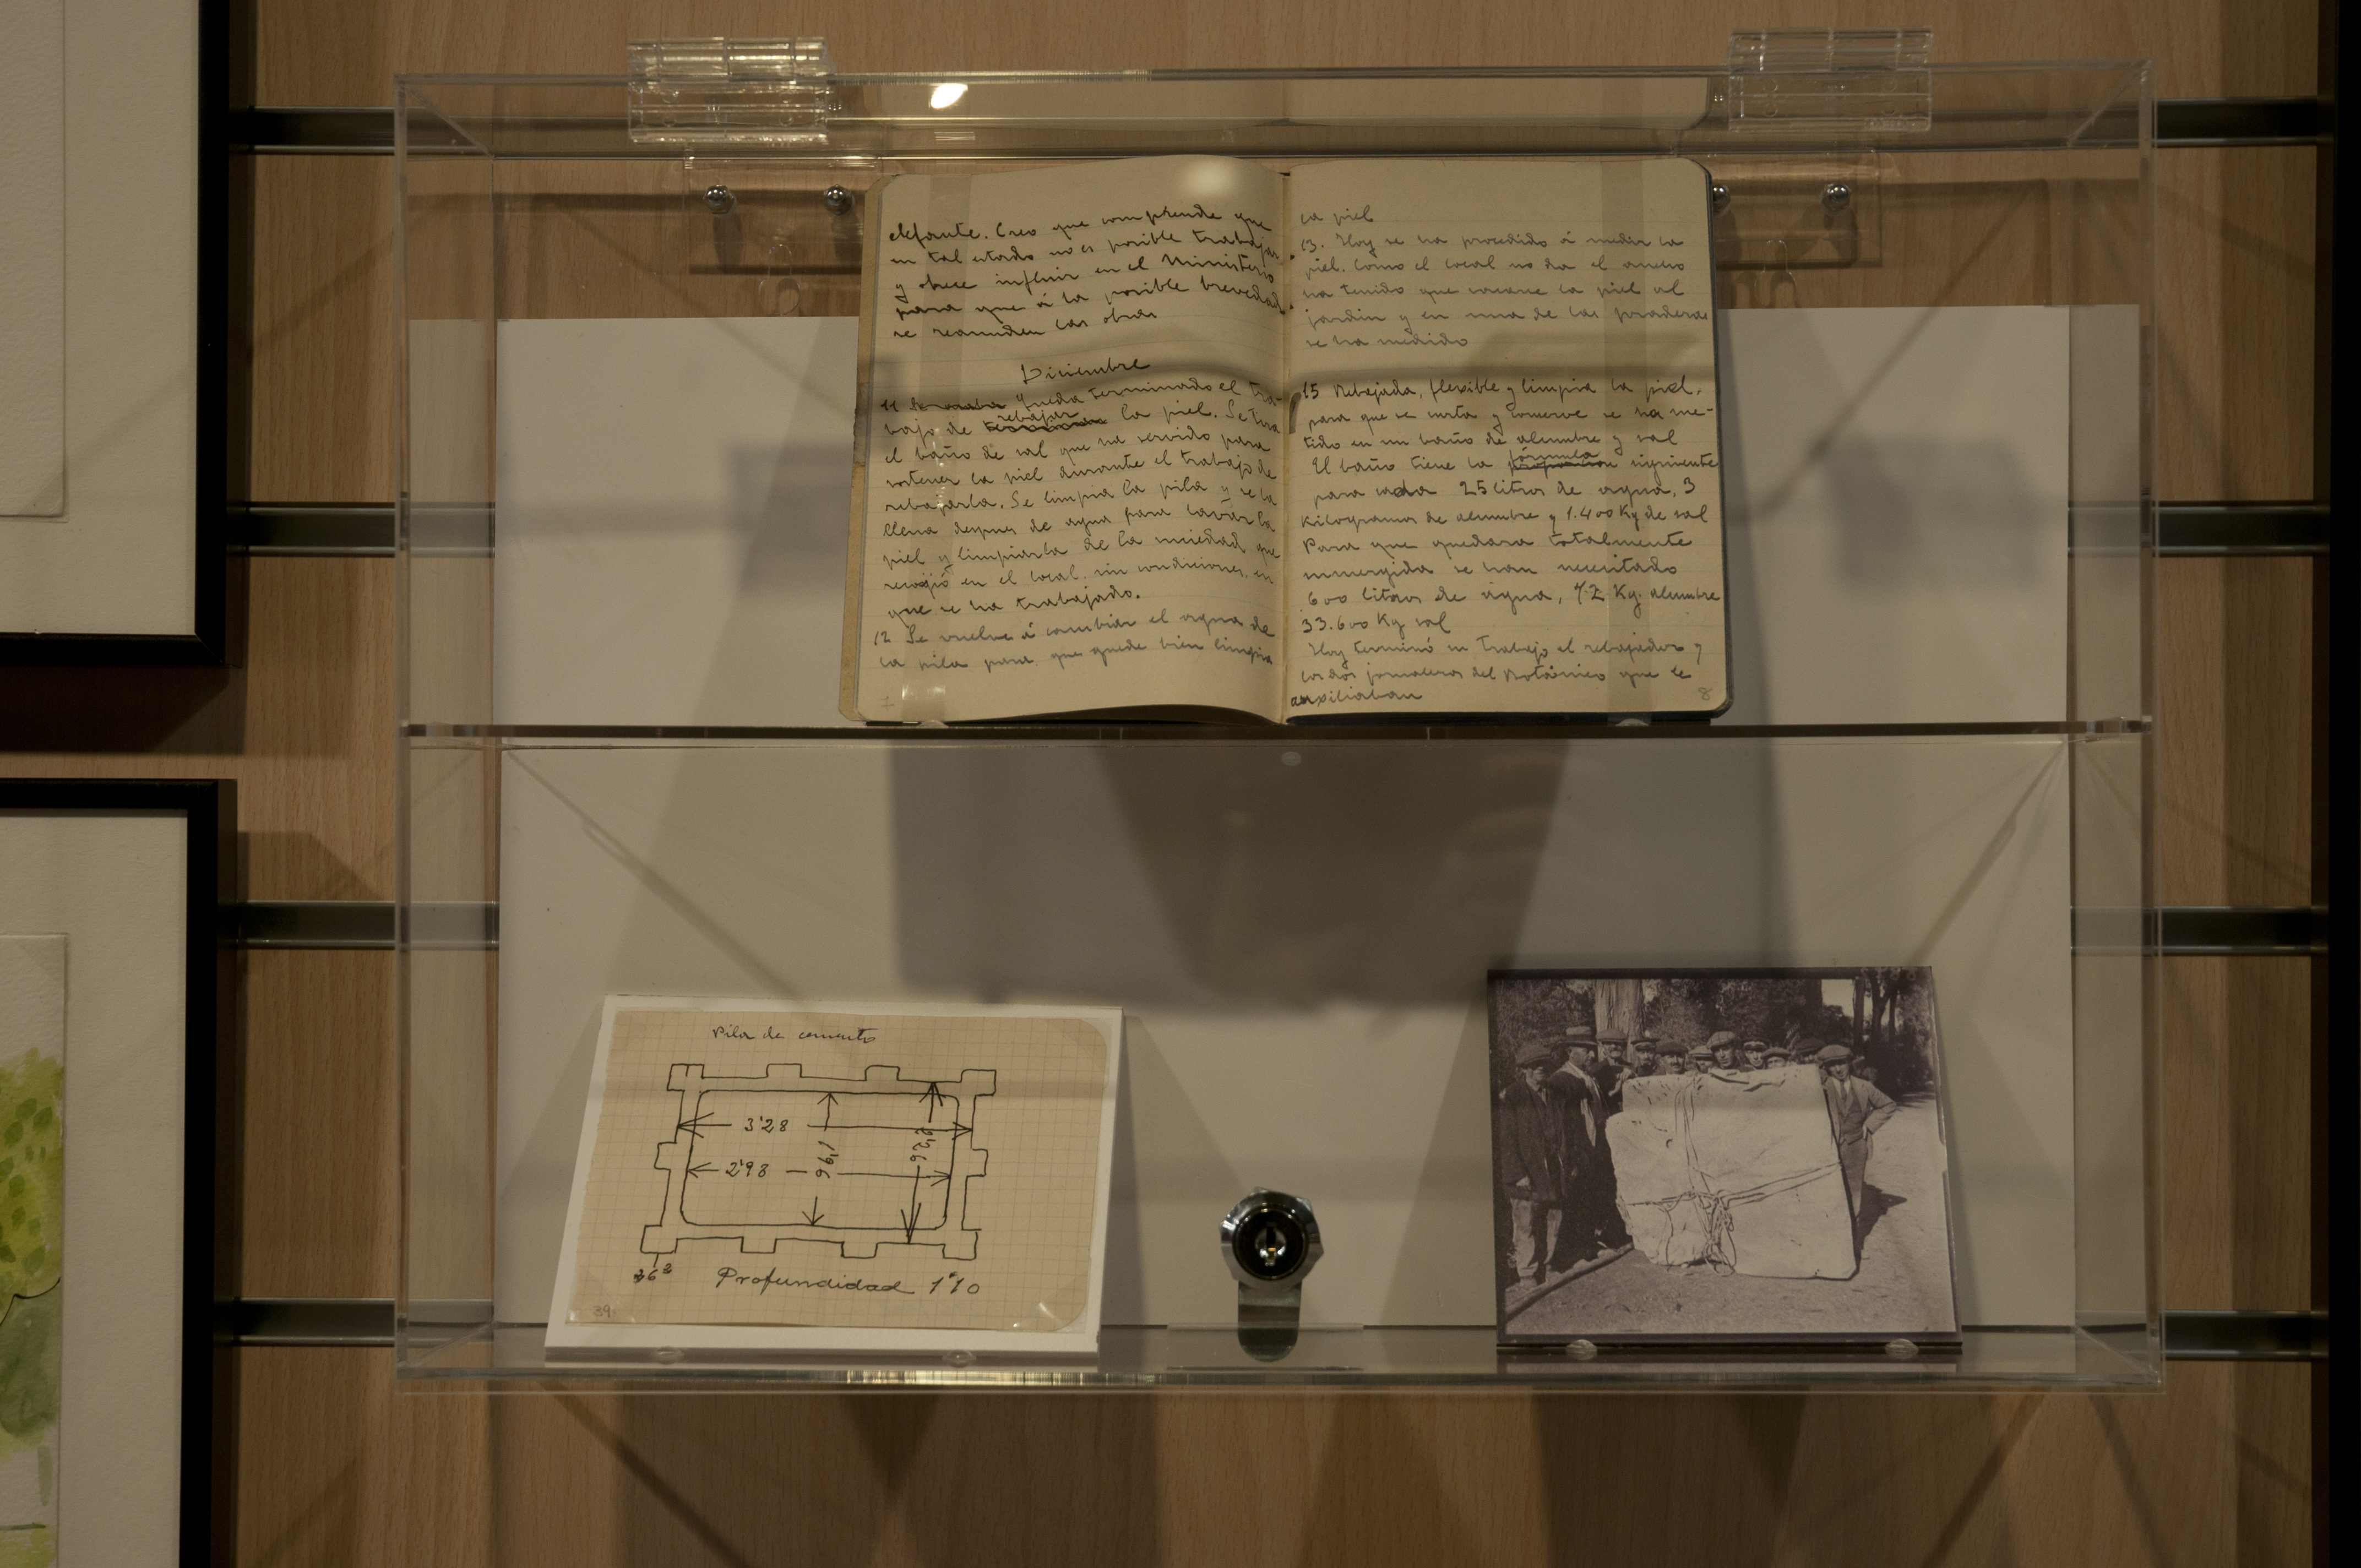 elefante. Creo que comprende que
en tal estado no es posible trabajar
y ofrece influir en el Ministerio
para que á la posible brevedad
se reanuden las obras
Diciembre
11 queda terminado el tra-
bajo de rebajar la piel. Se tira
el baño de sal que ha servido para
sostener la piel durante el trabajo de
rebajarla. Se limpia la pila y se la
llena despues de agua para lavar la
piel y limpiarla de la suciedad que
recojió en el local, sin condiciones, en
que se ha trabajado.
12 Se vuelve á cambiar el agua de
la pila para que quede bien limpia
7
la piel
13. Hoy se ha procedido á medir la
piel. Como el local no da el ancho
ha tenido que sacarse la piel al
jardin y en una de las praderas
se ha medido
15 Rebajada, flexible y limpia la piel,
para que se curta y conserve se ha me-
tido en un baño de alumbre y sal
El baño tiene la fórmula siguiente
para cada 25 litros de agua, 3
Kilogramos de alumbre y 1.400 Kg de sal
Para que quedara totalmente
sumergida se han necesitado
600 litros de agua, 72 Kg. alumbre
33.600 Kg sal
Hoy terminó su trabajo el rebajador y
los dos jornaleros del Botánico que le
auxiliaban
8
Pila de cemento
3'28
1'96
2'26
2'98
Profundidad 1'10
39